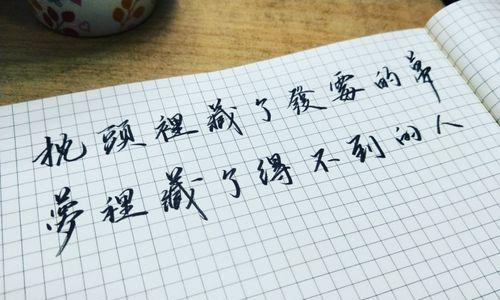 枕頭裡藏了發霉的
夢裡藏了得不到的人